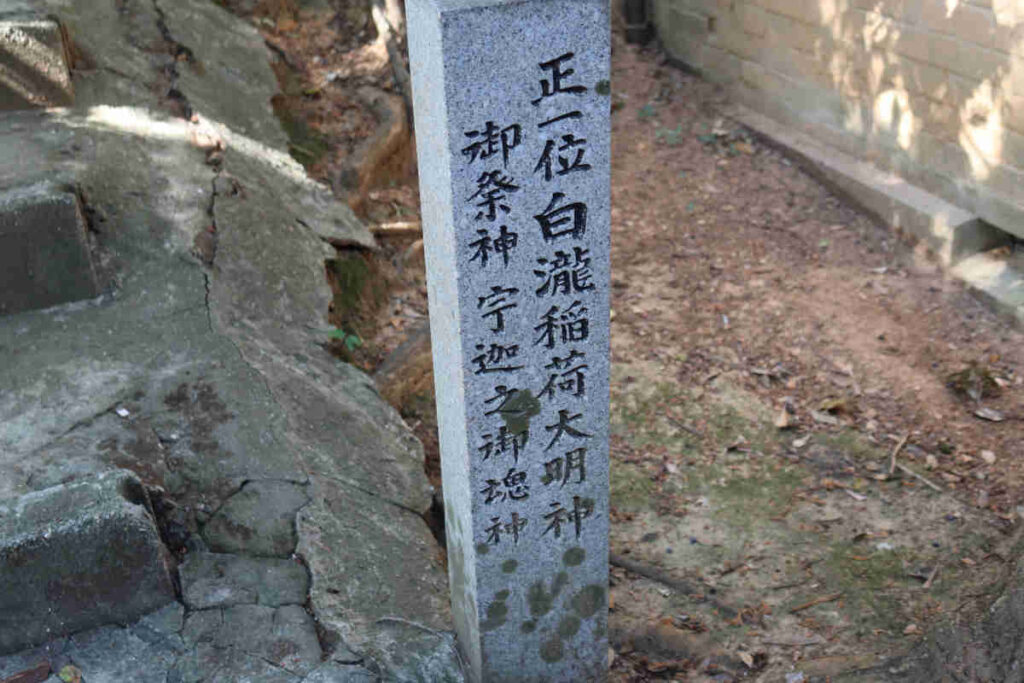 正一位白瀧稲荷大明神
御祭神 宇迦之御魂神